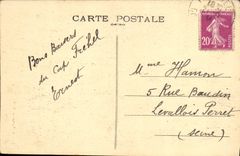 CARTE POSTALE
Bons Baisers
du Cap Frehel
Ernest
20
Mme Hamon
5 Rue Baudin
Levallois Perret
(Seine)